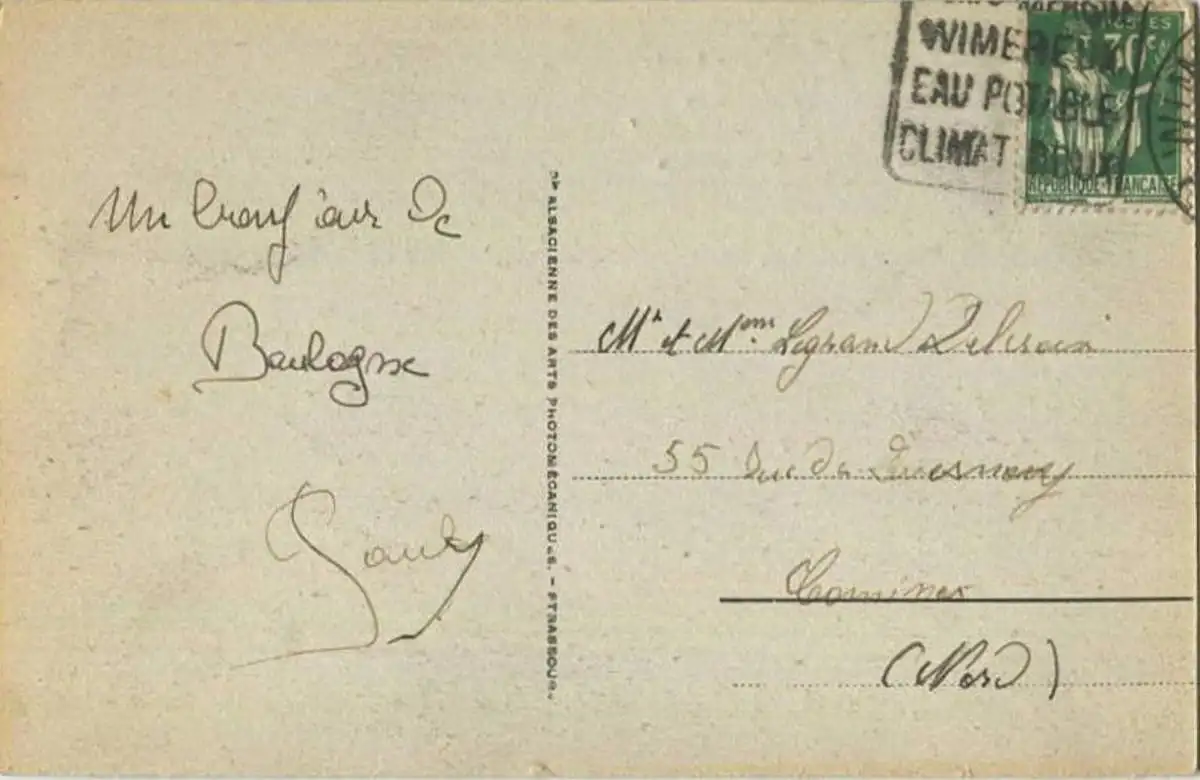 WIMEREUX
EAU POTABLE
CLIMAT DOUX
POSTES
30c
RÉPUBLIQUE FRANÇAISE
Un bonjour de
Boulogne
Cie ALSACIENNE DES ARTS PHOTOMÉCANIQUES. - STRASBOURG.
Mr et Mme Legrand Delcroix
55 Rue de Quesnoy
Comines
(Nord)